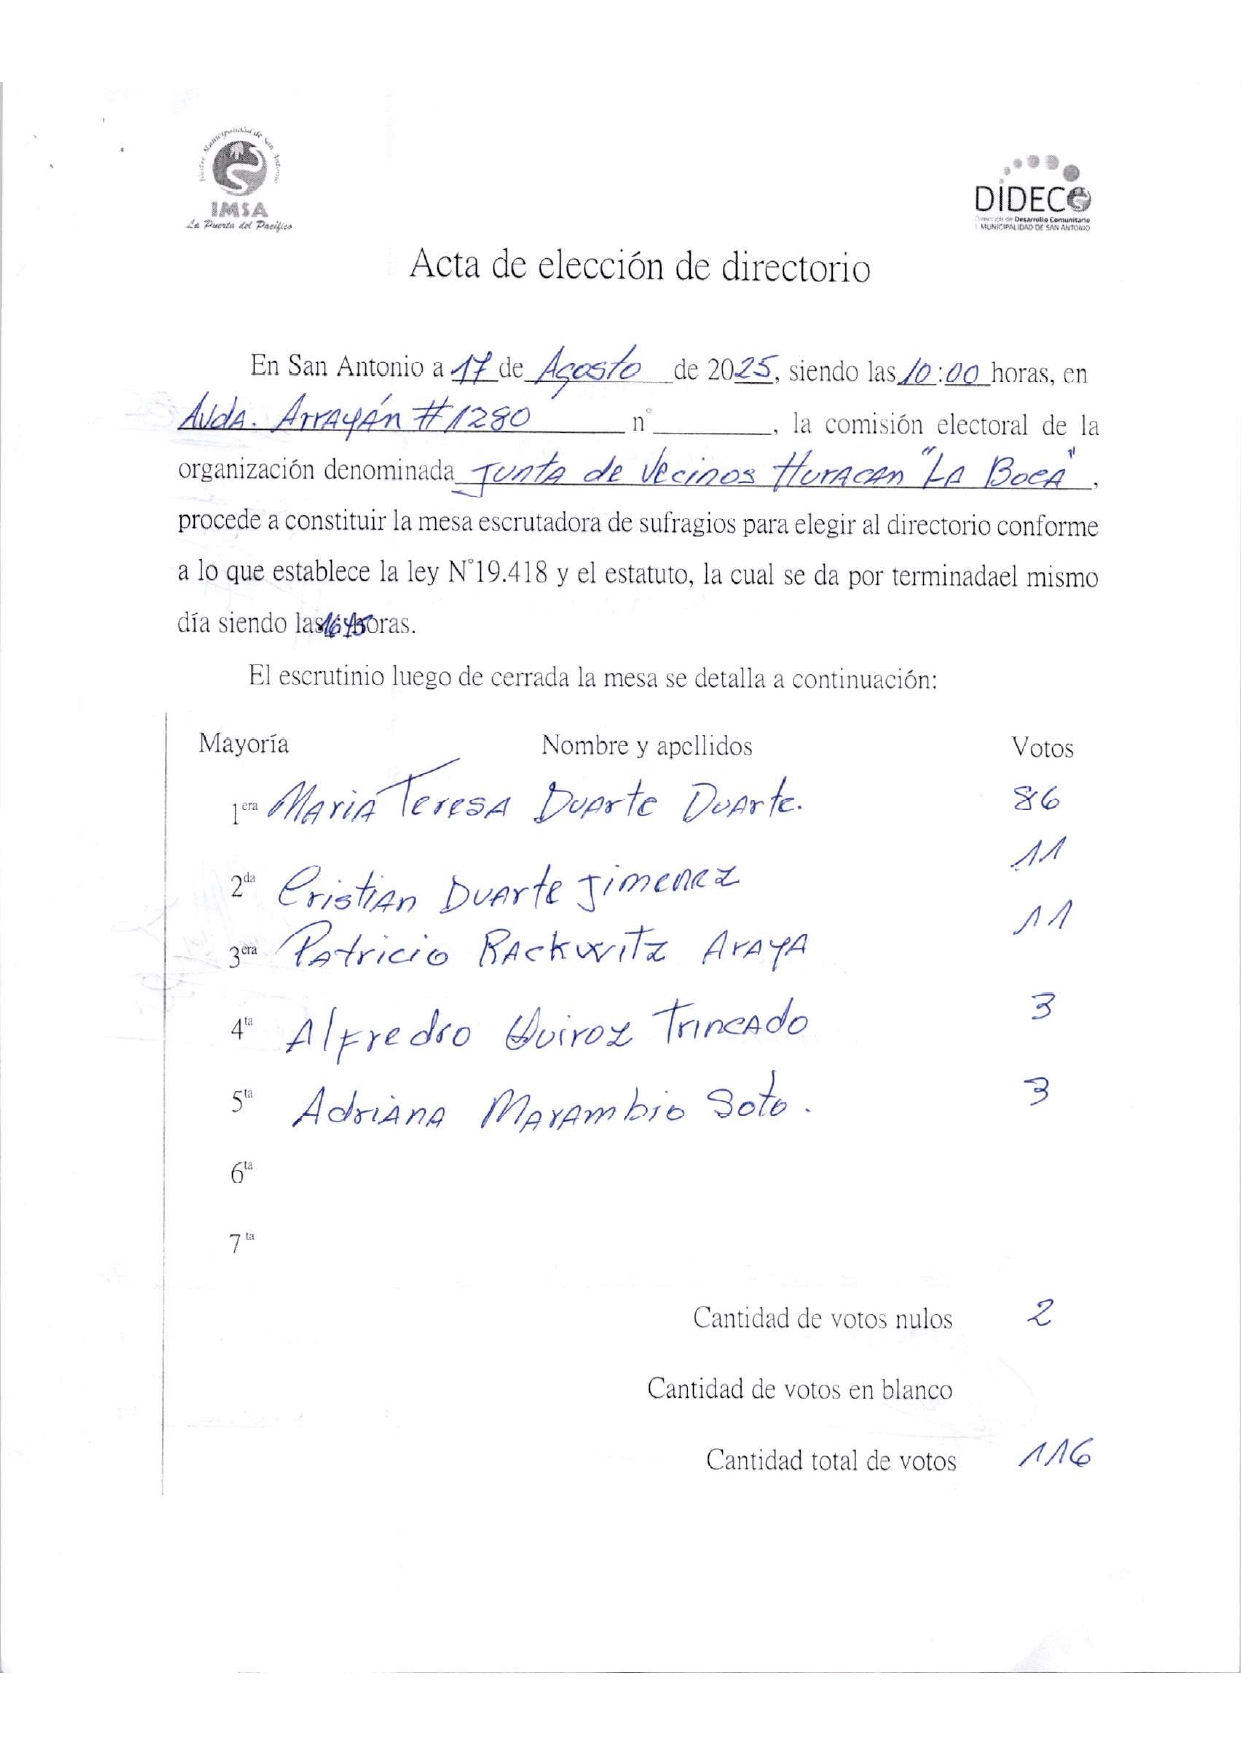 Ilustre Municipalidad de San Antonio
IMSA
La Puerta del Pacífico
DIDECO
Dirección de Desarrollo Comunitario
I. MUNICIPALIDAD DE SAN ANTONIO
Acta de elección de directorio
En San Antonio a 17 de Agosto de 2025, siendo las 10:00 horas, en
Avda. Arrayán #1280 n°________, la comisión electoral de la
organización denominada Junta de Vecinos Huracan "La Boca",
procede a constituir la mesa escrutadora de sufragios para elegir al directorio conforme
a lo que establece la ley N°19.418 y el estatuto, la cual se da por terminadael mismo
día siendo las 16:45 horas.
El escrutinio luego de cerrada la mesa se detalla a continuación:
Mayoría Nombre y apellidos Votos
1era Maria Teresa Duarte Duarte. 86
2da Cristian Duarte Jimenez 11
3era Patricio Rackwitz Araya 11
4ta Alfredo Quiroz Trincado 3
5ta Adriana Marambio Soto. 3
6ta
7ta
Cantidad de votos nulos 2
Cantidad de votos en blanco
Cantidad total de votos 116